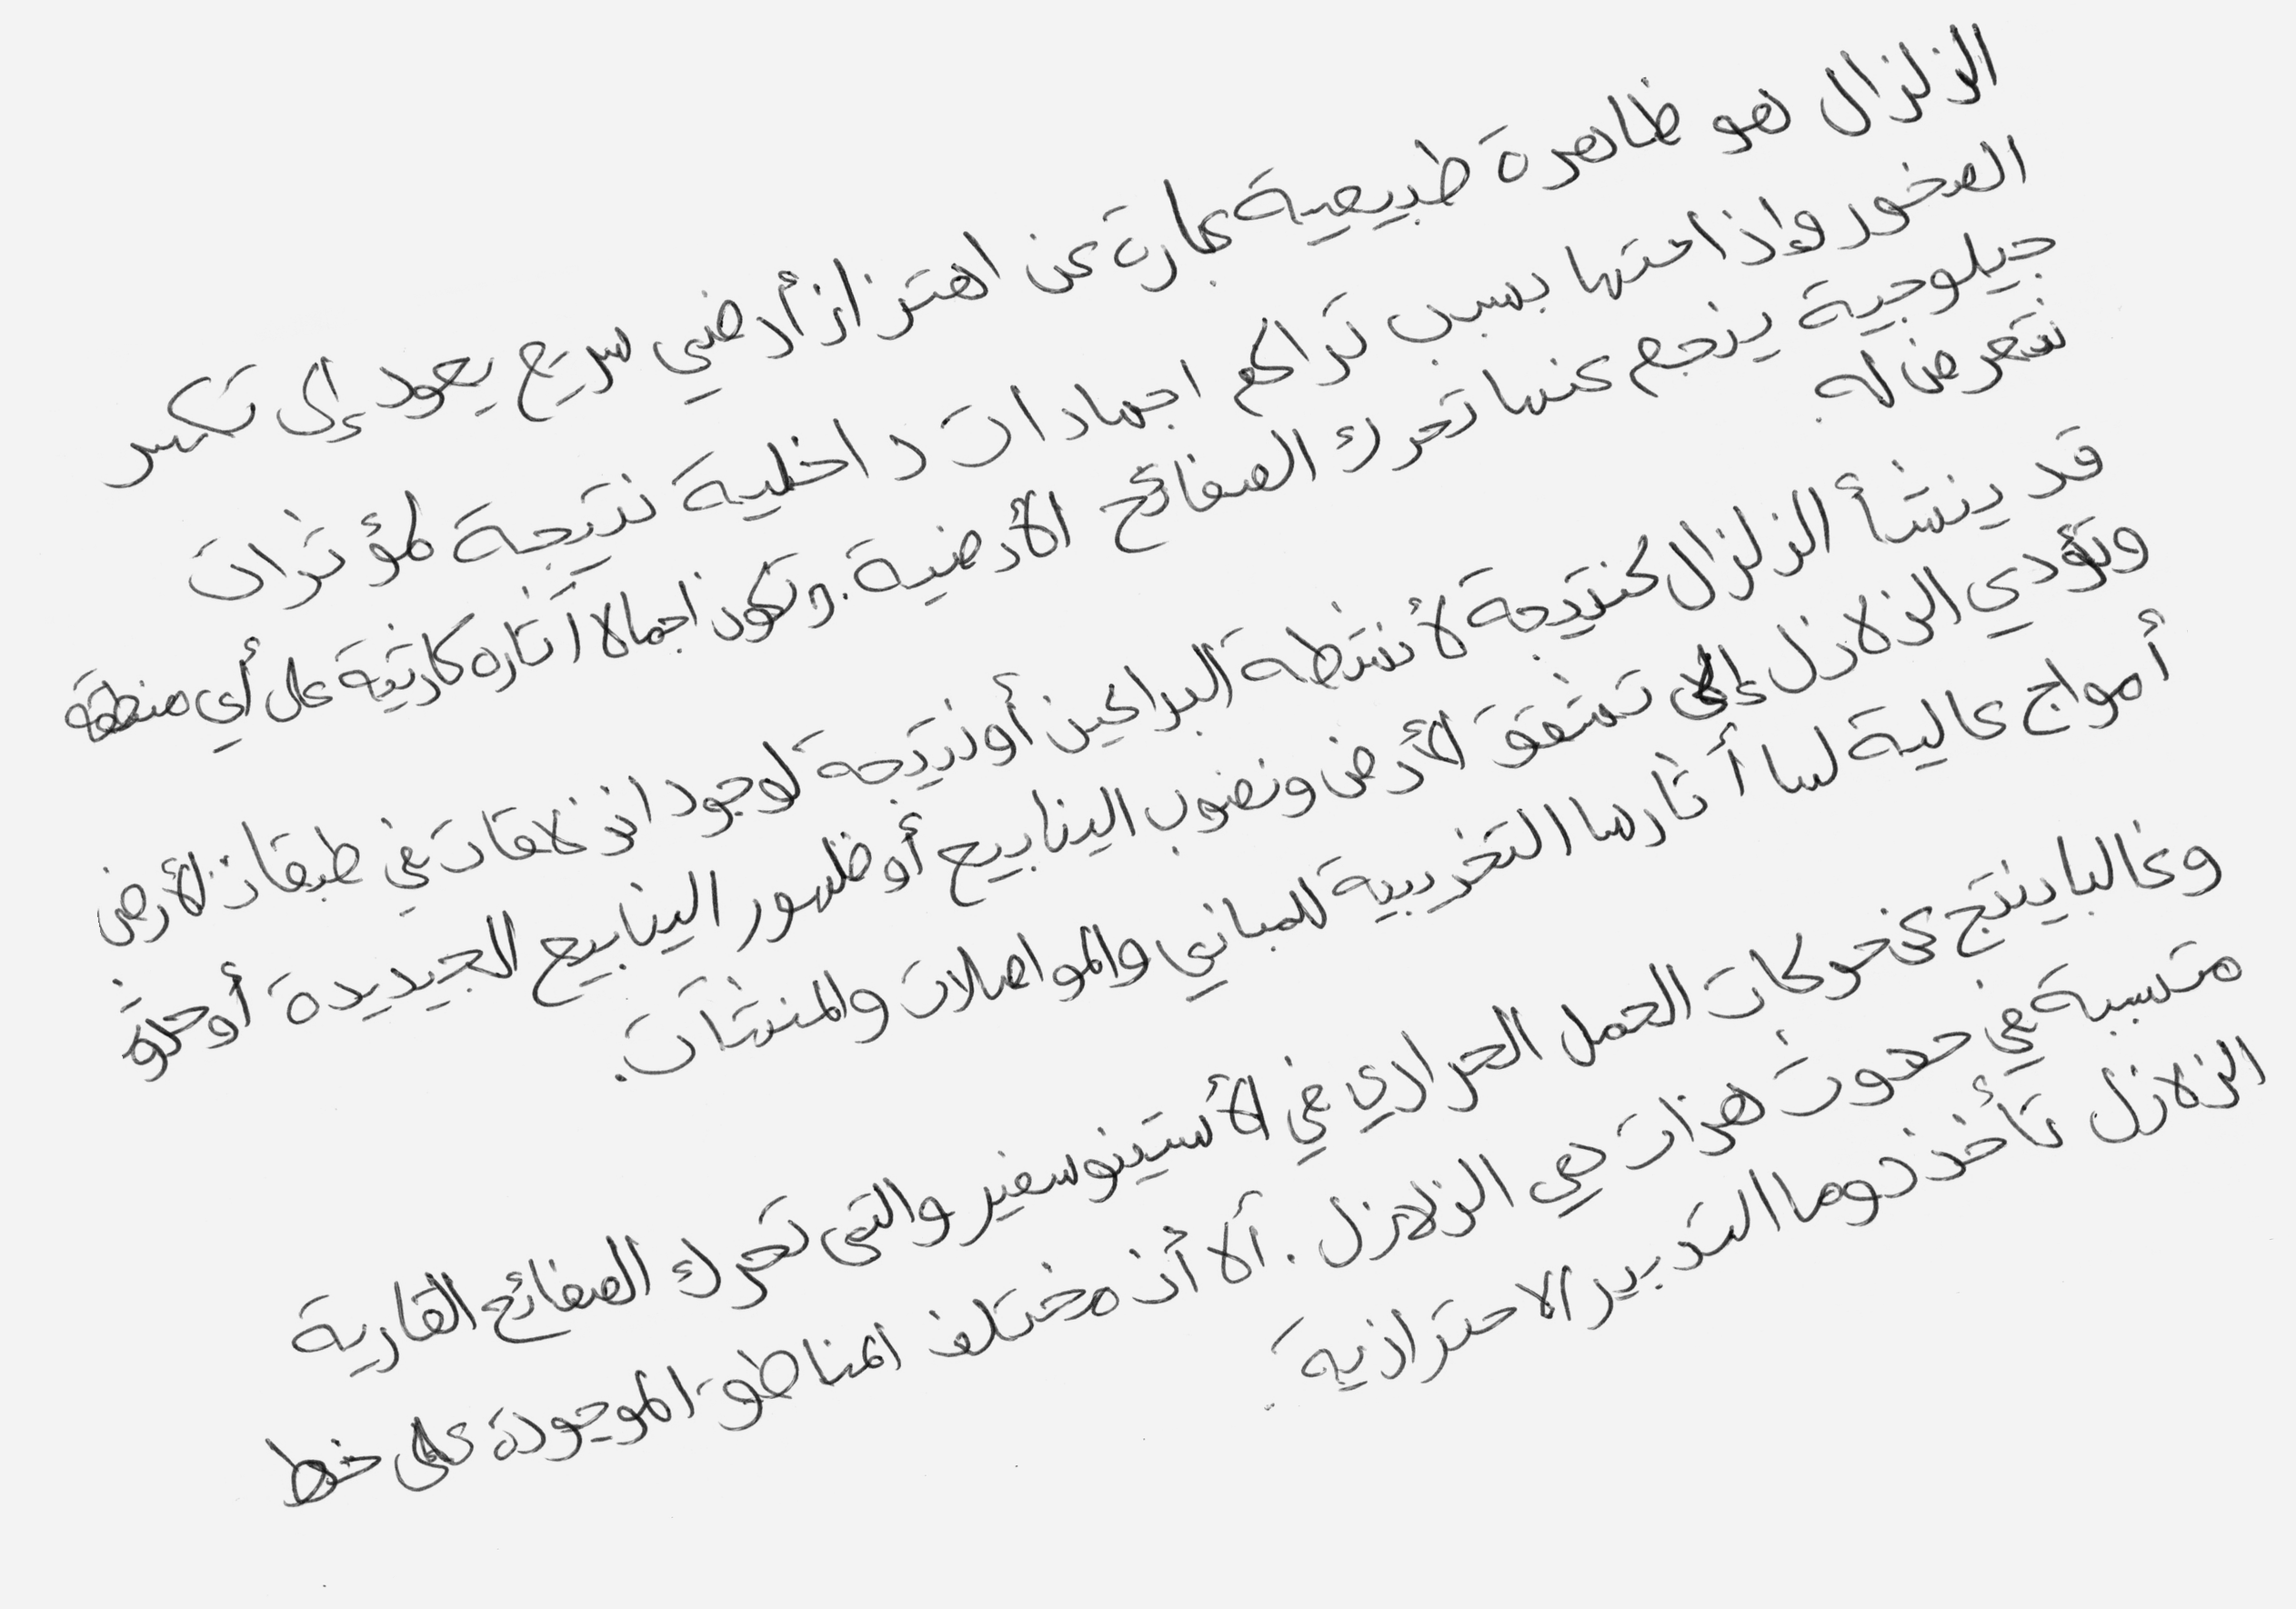 الزلزال هو ظاهرة طبيعية عبارة عن اهتزاز أرضي سريع يعود إلى تكسر
الصخور وإذاحتها بسبب تراكم اجهادات داخلية نتيجة لمؤثرات
جيلوجية ينجم عنها تحرك الصفائح الأرضية. وتكون اجمالا اثاره كارثية على أي منطقة
تتعرض له.
قد ينشأ الزلزال كنتيجة لأنشطة البراكين أو نتيجة لوجود انزلاقات في طبقات الأرض
وتؤدي الزلازل إلى تشقق الأرض ونضوب الينابيع أو ظهور الينابيع الجيديدة أو حدوث
أمواج عالية لها أثارها التخريبية للمباني والمواصلات والمنشآت.
وغالبا ينتج عن حركات الحمل الحراري في الأستينوسفير والتي تحرك الصفائح القارية
متسببة في حدوث هزات هي الزلازل. ألا أن مختلف المناطق الموجودة على خط
الزلازل تأخذ دوما التدبير الاحترازية.